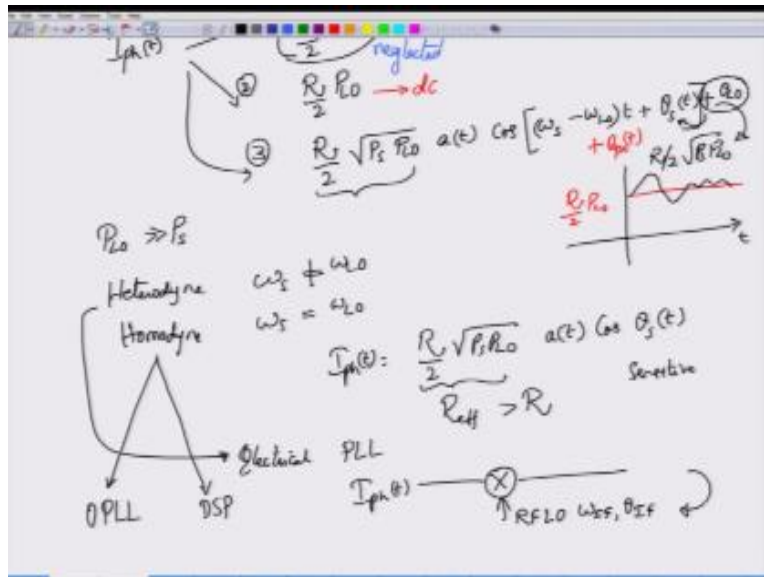 I_ph(t) 2 neglected
② R/2 P_LO → dc
③ R/2 √(P_S P_LO) a(t) Cos [(ω_S - ω_LO)t + θ_S(t)] + θ_LO
R/2 P_LO
t
P_LO ≫ P_S
Heterodyne ω_S ≠ ω_LO
Homodyne ω_S = ω_LO
I_ph(t) = R/2 √(P_S P_LO) a(t) Cos θ_S(t)
R_eff > R
Electrical PLL
OPLL DSP
I_ph(t) ⊗
RF LO ω_IF, θ_IF